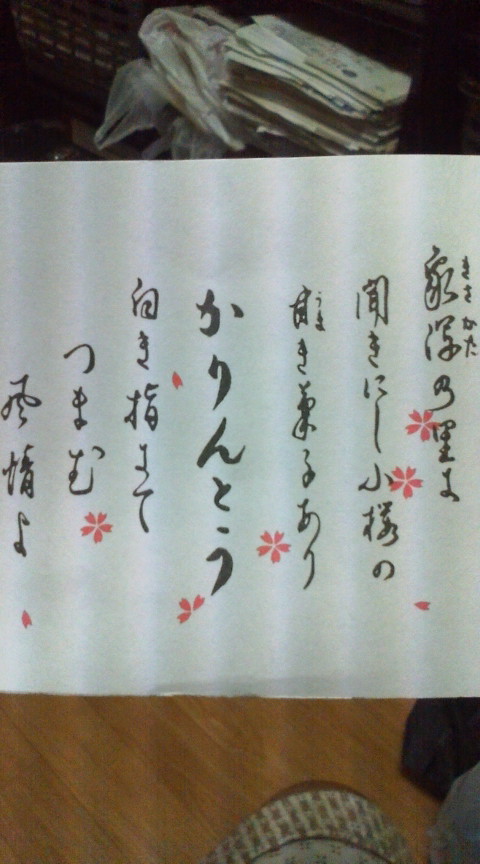 象潟の里に
きさかた
聞きにし小桜の
甘き菓子あり
うま
かりんとう
白き指にて
つまむ
風情よ